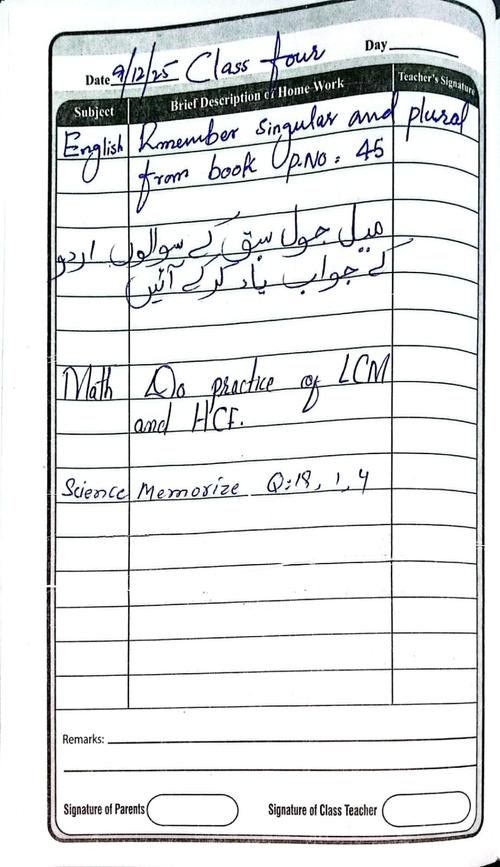 Date 9/12/25 Class four Day
Subject Brief Description of Home Work Teacher's Signature
English Rmember singular and plural
from book P.No: 45
اردو میل جول سبق کے سوالوں
کے جواب یاد کرکے آئیں
Math Do practice of LCM
and HCF.
Science Memorize Q:18, 1, 4
Remarks:
Signature of Parents Signature of Class Teacher